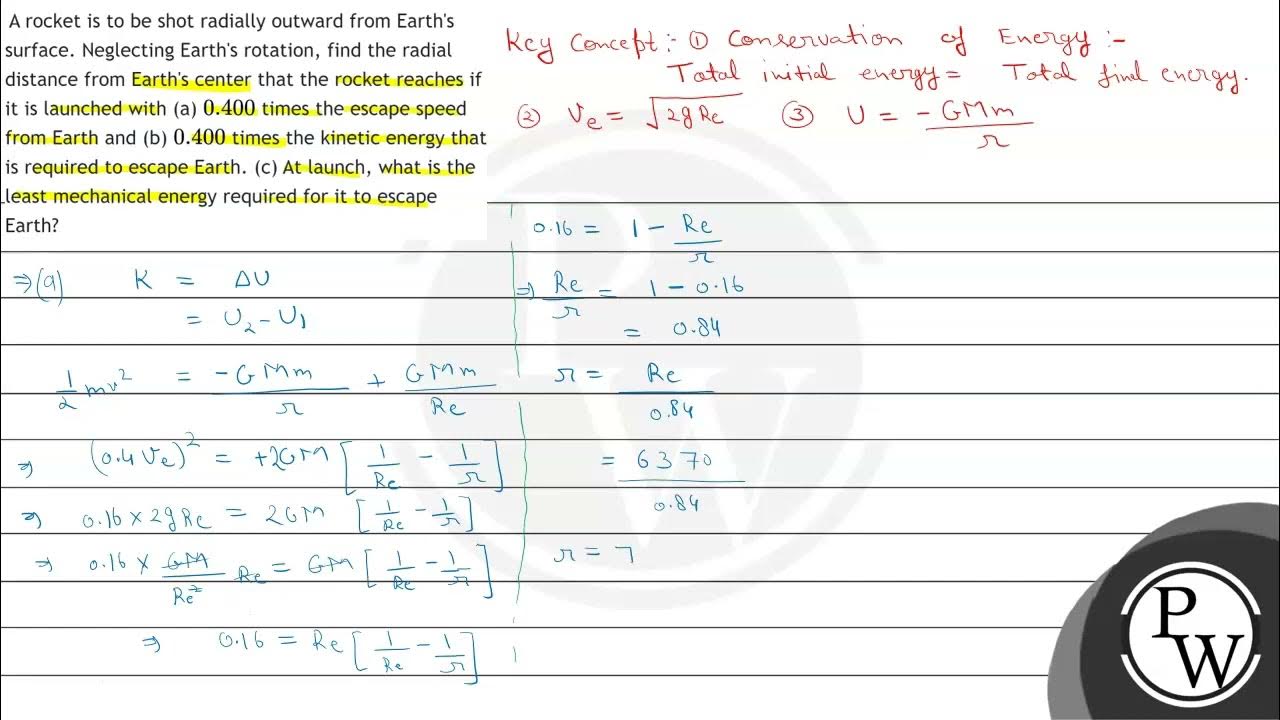 A rocket is to be shot radially outward from Earth's
surface. Neglecting Earth's rotation, find the radial
distance from Earth's center that the rocket reaches if
it is launched with (a) 0.400 times the escape speed
from Earth and (b) 0.400 times the kinetic energy that
is required to escape Earth. (c) At launch, what is the
least mechanical energy required for it to escape
Earth?
Key Concept :- ① Conservation of Energy :-
Total initial energy = Total find energy.
② Ve = √2gRe ③ U = -GMm/r
⇒ (a) K = ΔU
= U₂ - U₁
1/2 mv² = -GMm/r + GMm/Re
⇒ (0.4 Ve)² = +2GM [1/Re - 1/r]
⇒ 0.16 × 2gRe = 2GM [1/Re - 1/r]
⇒ 0.16 × GM/Re² Re = GM [1/Re - 1/r]
⇒ 0.16 = Re [1/Re - 1/r]
0.16 = 1 - Re/r
⇒ Re/r = 1 - 0.16
= 0.84
r = Re/0.84
= 6370/0.84
r = 7
PW
PW